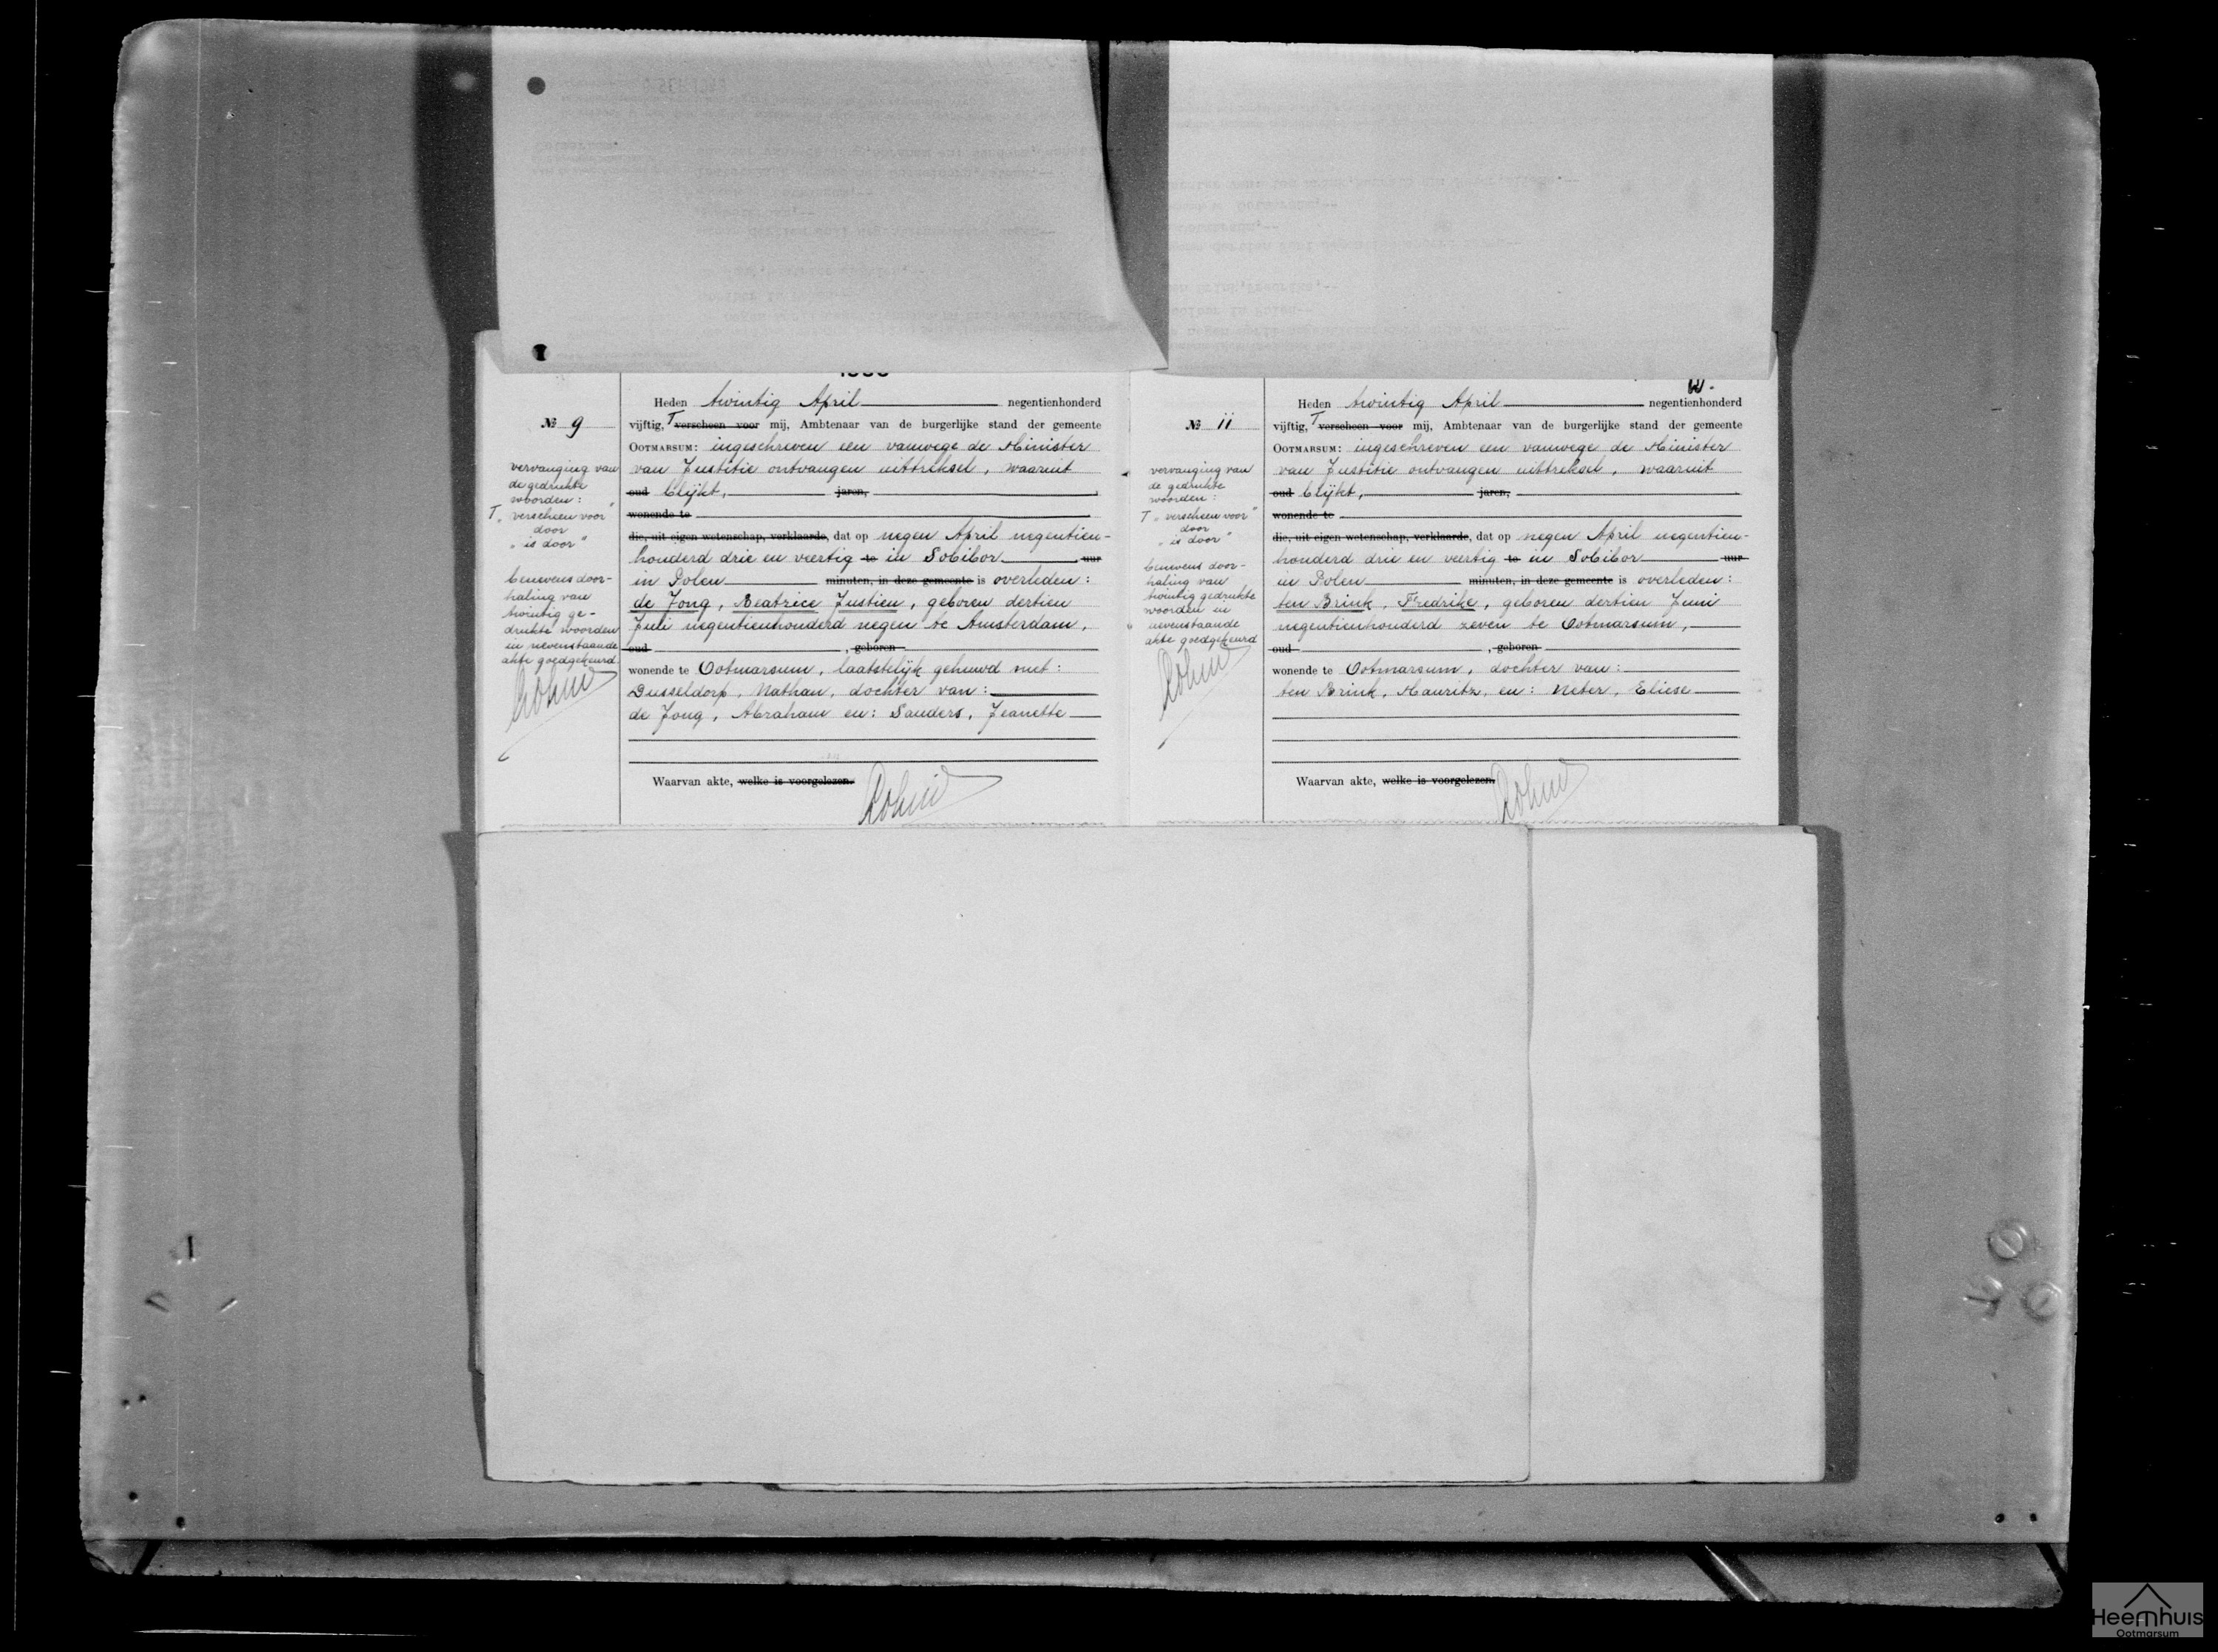 Heden twintig April negentienhonderd
№ 9
vijftig, T verscheen voor mij, Ambtenaar van de burgerlijke stand der gemeente
OOTMARSUM: ingeschreven een vanwege de Minister
van Justitie ontvangen uittreksel, waaruit
oud blijkt, jaren,
wonende te
die, uit eigen wetenschap, verklaarde, dat op negen April negentien-
honderd drie en veertig te in Sobibor uur
in Polen minuten, in deze gemeente is overleden:
de Jong, Beatrice Justien, geboren dertien
Juli negentienhonderd negen te Amsterdam,
oud , geboren
wonende te Ootmarsum, laatstelijk gehuwd met:
Dusseldorp, Nathan, dochter van:
de Jong, Abraham en: Sanders, Jeanette
Waarvan akte, welke is voorgelezen.
vervanging van
de gedrukte
woorden:
T „verscheen voor"
door
„is door"
benevens door-
haling van
twintig ge-
drukte woorden
in nevenstaande
akte goedgekeurd.
W.
Heden twintig April negentienhonderd
№ 11
vijftig, T verscheen voor mij, Ambtenaar van de burgerlijke stand der gemeente
OOTMARSUM: ingeschreven een vanwege de Minister
van Justitie ontvangen uittreksel, waaruit
oud blijkt, jaren,
wonende te
die, uit eigen wetenschap, verklaarde, dat op negen April negentien-
honderd drie en veertig te in Sobibor uur
in Polen minuten, in deze gemeente is overleden:
ten Brink, Fredrike, geboren dertien Juni
negentienhonderd zeven te Ootmarsum,
oud , geboren
wonende te Ootmarsum, dochter van:
ten Brink, Mauritz, en: Neter, Eliese
Waarvan akte, welke is voorgelezen.
vervanging van
de gedrukte
woorden:
T „verscheen voor"
door
„is door"
benevens door-
haling van
twintig gedrukte
woorden in
nevenstaande
akte goedgekeurd
Heemhuis
Ootmarsum